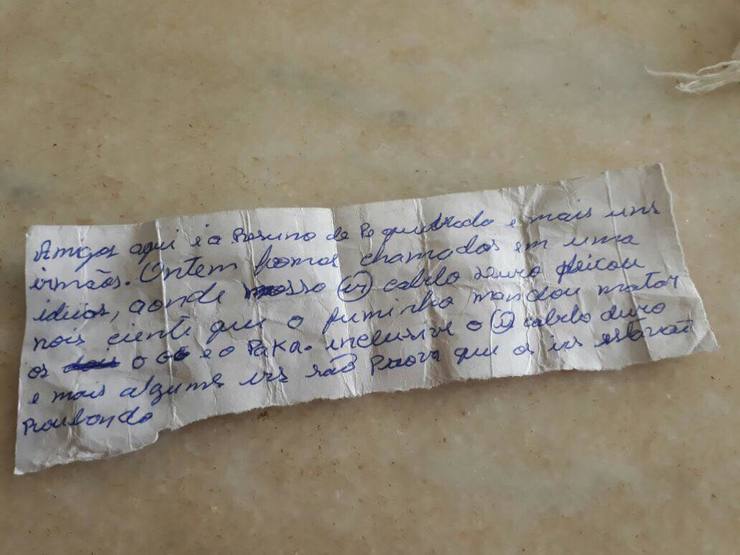 Amigos aqui é a Resumo de Pé quebrado e mais uns
irmãos. Ontem fomos chamados em uma
ideias, aonde nosso ir cabelo duro deixou
nois ciente que o fuminho mandou matar
os o GG e o Paka. inclusive o ir cabelo duro
e mais algums irs são Prova que os irs estavão
Roubando